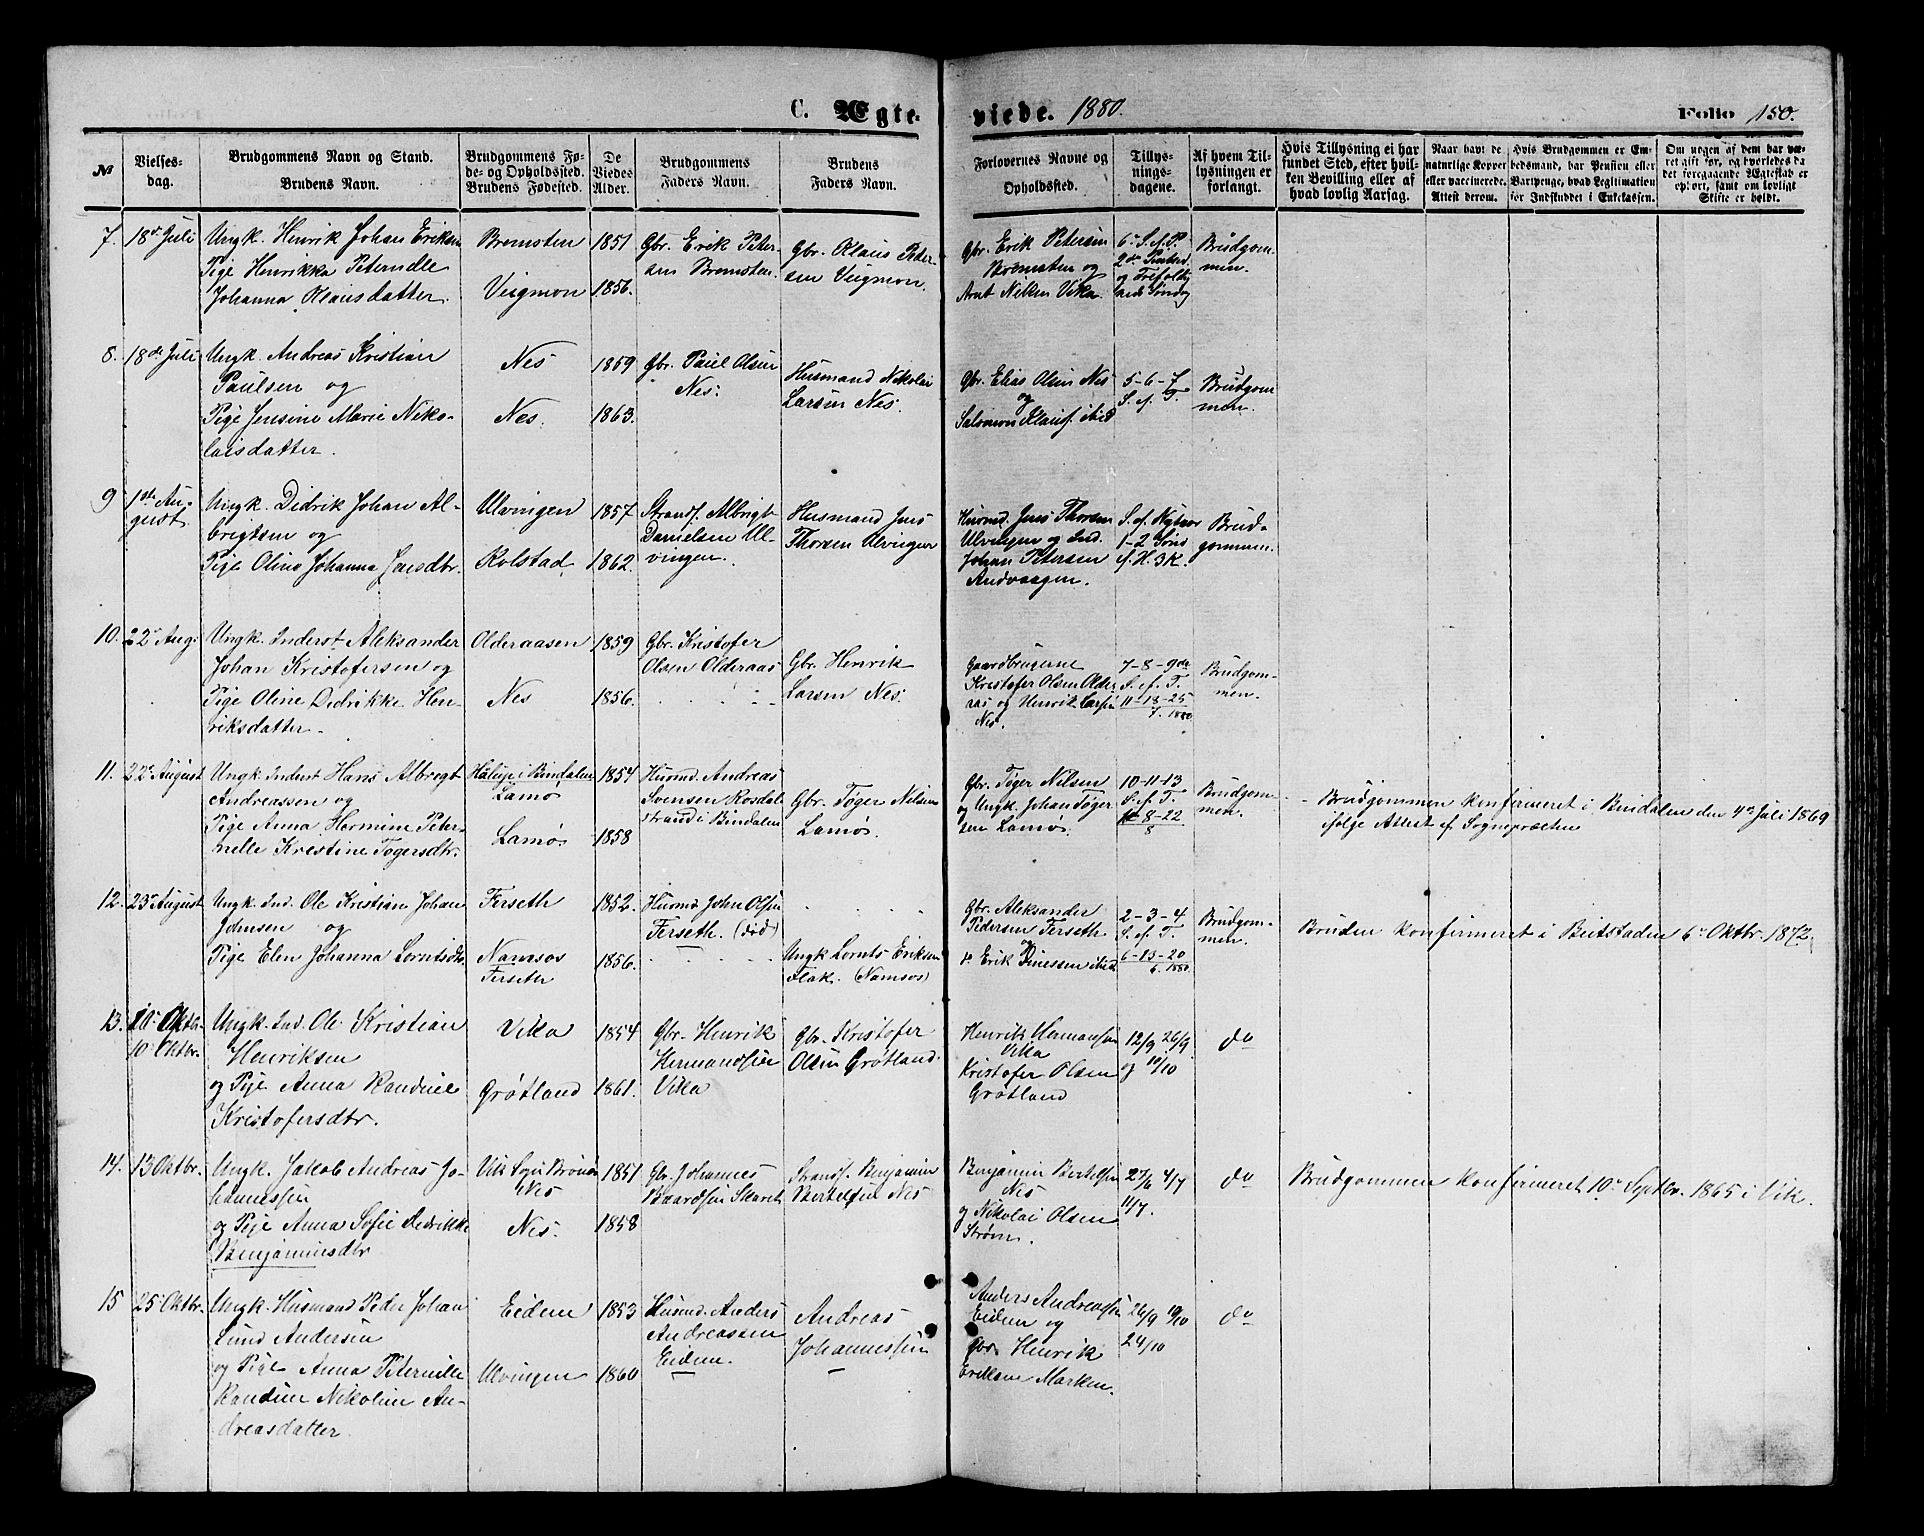 C. Ægte-
viede. 1880.
Folio 150.
№
Vielses-
dag.
Brudgommens Navn og Stand.
Brudens Navn.
Brudgommens Fø-
de- og Opholdssted.
Brudens Fødested.
De
Viedes
Alder.
Brudgommens
Faders Navn.
Brudens
Faders Navn.
Forlovernes Navne og
Opholdssted.
Tillys-
nings-
dagene.
Af hvem Til-
lysningen er
forlangt.
Hvis Tillysning ei har
fundet Sted, efter hvil-
ken Bevilling eller af
hvad lovlig Aarsag.
Naar havt de
naturlige Kopper
eller vaccinerede.
Attest derom.
Hvis Brudgommen er Em-
bedsmand, har Pension eller
Vartpenge, hvad Legitimation
for Indskuddet i Enkekassen.
Om nogen af dem har væ-
ret gift før, og hvorledes da
det foregaaende Ægteskab er
ophørt, samt om lovligt
Skifte er holdt.
7. 18de Juli
Ungk. Henrik Johan Eriksen
Pige Henrikka Peternelle
Johanna Klausdatter.
Bremsten
Veigmon
1851
1856.
Gbr. Erik Peter-
sen Bremsten.
Gbr. Klaus Peder-
sen Veigmon.
Gbr. Erik Petersen
Bremsten og
Arnt Nilsen Vika.
6te S. e. P.
2den Pintsed.
og Trefoldig-
heds Søndag
Brudgom-
men.
8. 18de Juli
Ungk. Andreas Kristian
Paulsen og
Pige Jensine Marie Niko-
laisdatter.
Nes
Nes.
1859
1863.
Gbr. Paul Olsen
Nes.
Husmand Nikolai
Larsen Nes.
Gbr. Elias Olsen Nes
og
Salomon Klaus. ibid
5-6-7
S. e. T.
Brudgom
men.
9 1ste Au-
gust
Ungk. Didrik Johan Al-
brigtsen og
Pige Oline Johanna Jensdtr.
Ulvingen
Rolstad
1857
1862.
Strands. Albrigt
Danielsen Ul-
vingen.
Husmand Jens
Thorsen Ulvingen
Husmd. Jens Thorsen
Ulvingen og Ind.
Johan Petersen
Andvaagen.
S. e. Nytaar
1-2 Sønd
e. H. 3 K.
Brud-
gommen.
10. 22de Aug.
Ungk. Inderst Aleksander
Johan Kristofersen og
Pige Oline Didrikke Hen-
riksdatter.
Olderaasen
Nes
1859
1856.
Gbr. Kristofer
Olsen Olderaas
Gbr. Henrik
Larsen Nes.
Gaardbrugerne
Kristofer Olsen Older
aas og Henrik Larsen
Nes.
7-8-9de
S. e. T.
11-18-25
7. 1880
Brudgom-
men.
11. 22de August
Ungk. Inderst Hans Albregt
Andreassen og
Pige Anna Hermine Peter-
nelle Kristine Tøgersdtr.
i Bindalen
Lamø
Lamø
1854
1858
Husmd. Andreas
Svensen Rosdal
strand i Bindalen
Gbr. Tøger Nilsen
Lamøs.
Gbr. Tøger Nilsen
og Ungk. Johan Tøger
sen Lamøs.
10-11-13
S. e. T.
8-22
8
Brudgom-
men.
Brudgommen konfirmeret i Bindalen den 4de Juli 1869
ifølge Attest af Sognepræsten
12. 23de August
Ungk. Ind. Ole Kristian Johan
Johnsen og
Pige Elen Johanna Lorntsdtr.
Ferseth
Namsos
Ferseth
1852.
1856.
Husmd John Olsen
Ferseth. (død)
Ungk Lornts Eriksen
Flak. (Namsos)
Gbr. Aleksander
Pedersen Ferseth
og
do Erik Dinessen ibid
2-3-4
S. e. T.
6-13-20
6. 1880.
Brudgom-
men.
Bruden konfirmeret i Beitstaden 6te Oktbr. 1872.
13. 10de Oktbr.
10 Oktbr.
Ungk. Ind. Ole Kristian
Henriksen
og Pige Anna Randine
Kristofersdtr.
Vika
Grøtland
1854
1861.
Gbr. Henrik
Hermandsen
Vika
Gbr. Kristofer
Olsen Grøtland.
Henrik Hermansen
Vika
Kristofer Olsen
Grøtland
12/9 26/9
og 10/10
do
14. 13 Oktbr.
Ungk. Jakob Andreas Jo-
hannessen
og Pige Anna Sofie Didrikke
Benjaminsdtr
Vik Sogn Brønø
Nes
Nes.
1851
1858
Gbr. Johannes
Baardsen Skaret
Strands. Benjamin
Bertelsen Nes
Benjamin Bertelsen
Nes
og Nikolai Olsen
Strøm.
27/6 4/7
11/7.
do
Brudgommen konfirmeret 10de Septbr. 1865 i Vik.
15 25de Oktbr.
Ungk. Husmand Peder Johan
Lund Andersen
og Pige Anna Peternille
Randine Nikoline An-
dreasdatter
Eidem
Ulvingen
1853
1860
Husmd. Anders
Andreassen
Eidem.
Andreas
Johannessen
Anders Andreassen
Eidem og
Gbr. Henrik
Eriksen Marken.
26/9 10/10
24/10
do